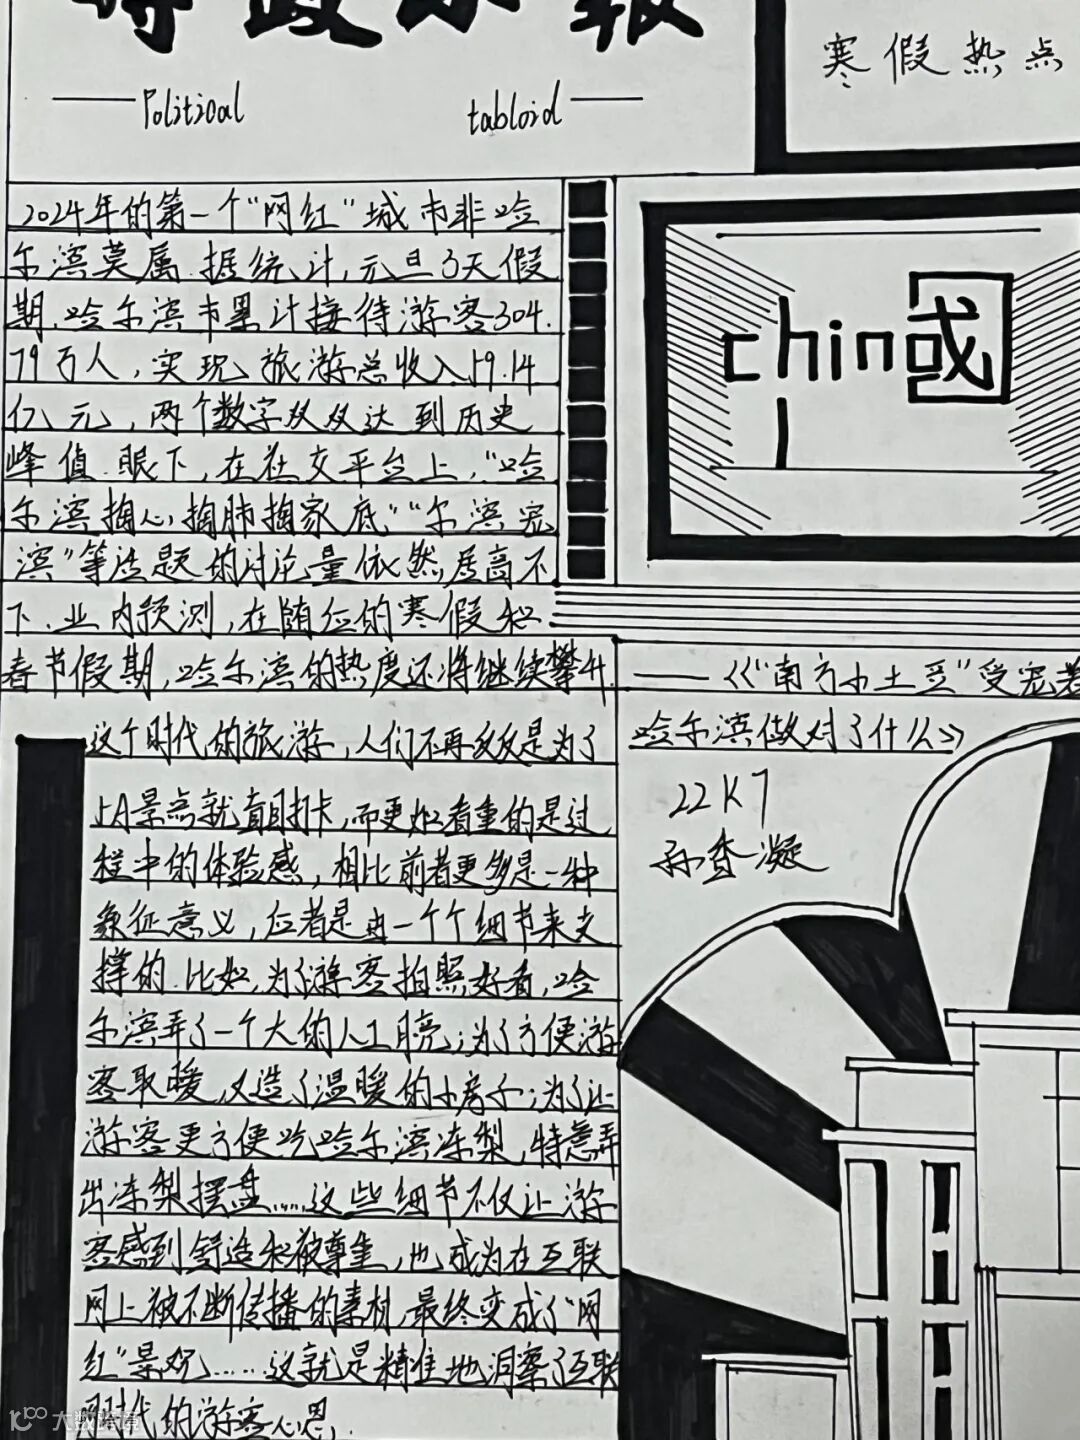 时政小报
Political tabloid
寒假热点
2024年的第一个“网红”城市非哈
尔滨莫属.据统计,元旦3天假
期,哈尔滨市累计接待游客304.
79万人,实现旅游总收入59.14
亿元,两个数字双双达到历史
峰值.眼下,在社交平台上,“哈
尔滨掏心掏肺掏家底”“尔滨宠
滨”等话题的讨论量依然居高不
下.业内预测,在随后的寒假和
春节假期,哈尔滨的热度还将继续攀升
china
國
——《“南方小土豆”受宠着
哈尔滨做对了什么》
22K7
这个时代的旅游,人们不再仅仅是为了
5A景点就盲目打卡,而更加看重的是过
程中的体验感,相比前者更多是一种
象征意义,后者是由一个个细节来支
撑的.比如,为了游客拍照好看,哈
尔滨弄了一个大的人工月亮;为了方便游
客取暖,又造了温暖的小房子;为了让
游客更方便吃哈尔滨冻梨,特意弄
出冻梨摆盘……这些细节不仅让游
客感到舒适和被尊重,也成为在互联
网上被不断传播的素材,最终变成了“网
红”景观……这就是精准地洞察了互联
网时代的游客心思.
大数跨境